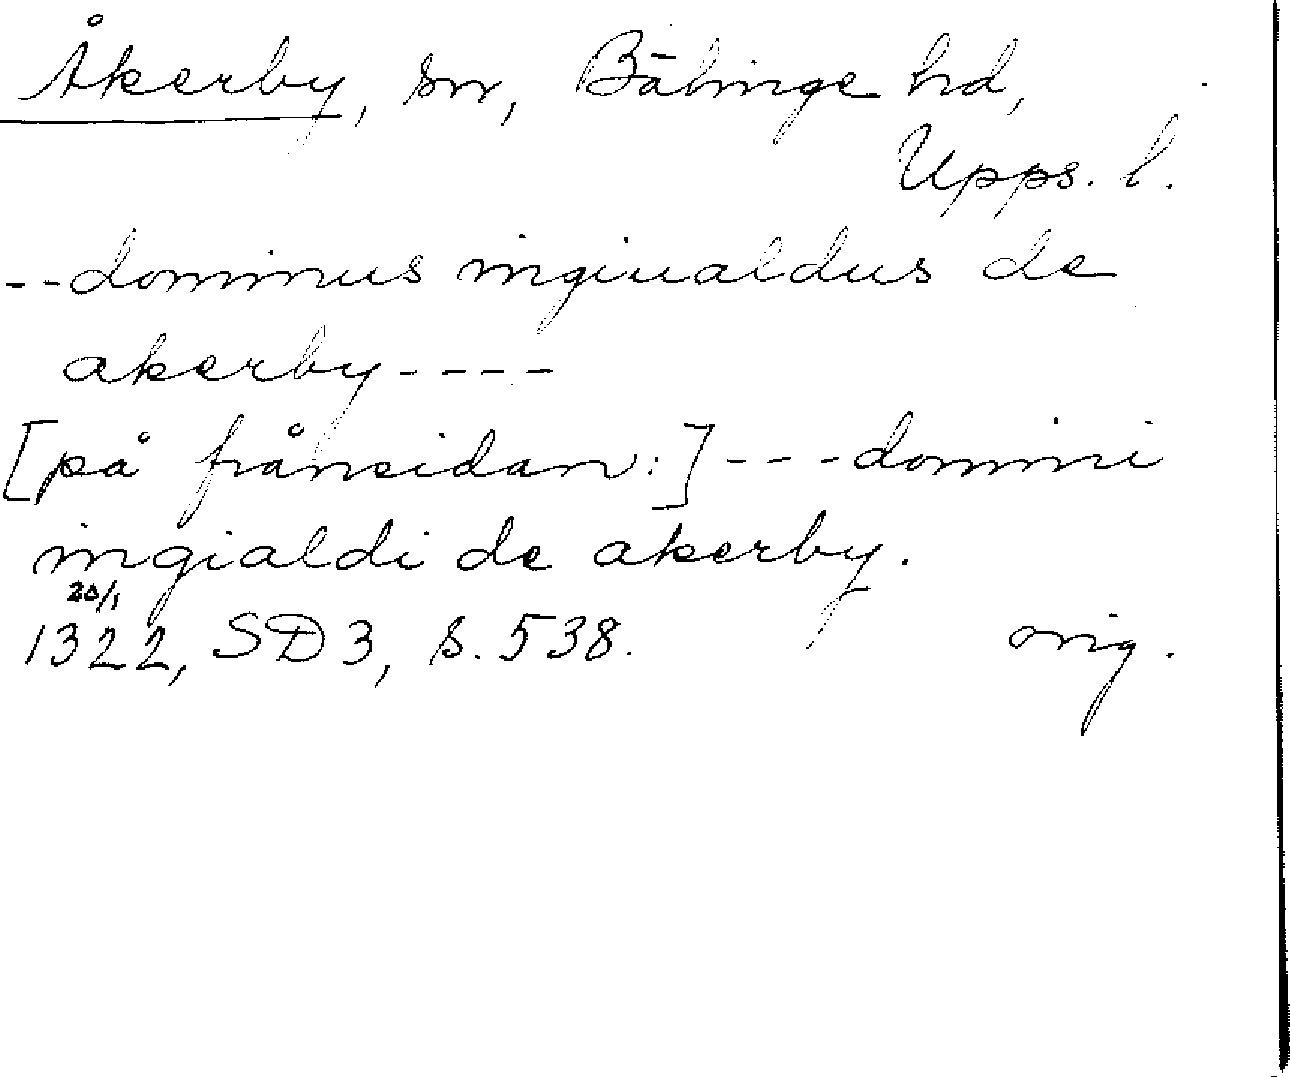 Åkerby, sn, Bälinge hd,
Upps. l.
--dominus ingiualdus de
akerby----
[på frånsidan:]---domini
ingialdi de akerby.
20/1
1322, SD3, s. 538. orig.